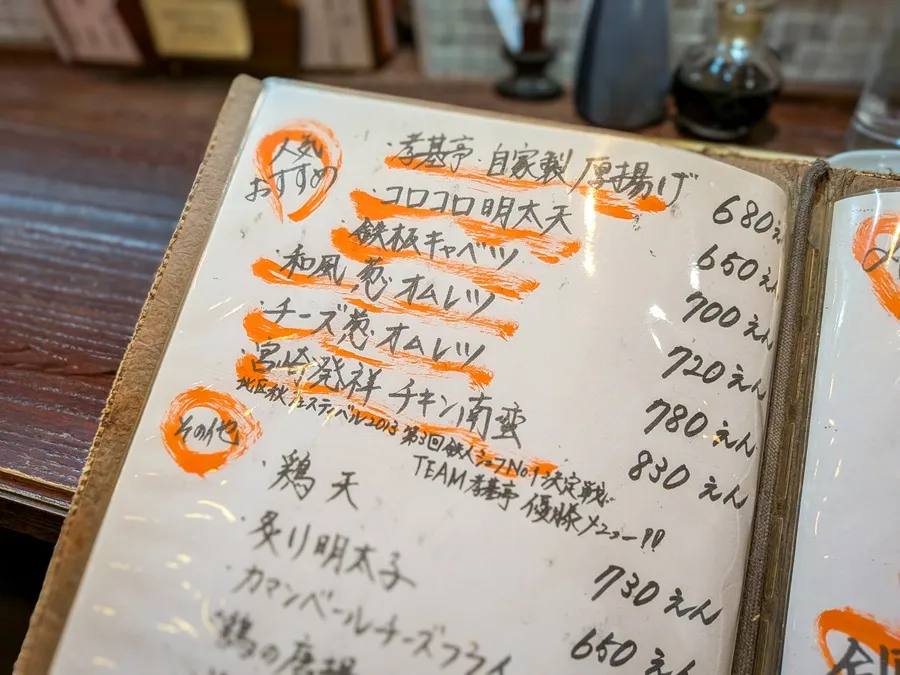 人気
おすすめ
・孝基亭・自家製厚揚げ 680えん
・コロコロ明太天 650えん
・鉄板キャベツ 700えん
・和風葱オムレツ 720えん
・チーズ葱オムレツ 780えん
・宮崎発祥チキン南蛮 830えん
北区秋フェスティバル2013 第3回鉄人シェフNo.1決定戦
TEAM孝基亭 優勝メニュー!!
その他
・鶏天 730えん
・炙り明太子 650えん
・カマンベールチーズフライ
・鶏の唐揚